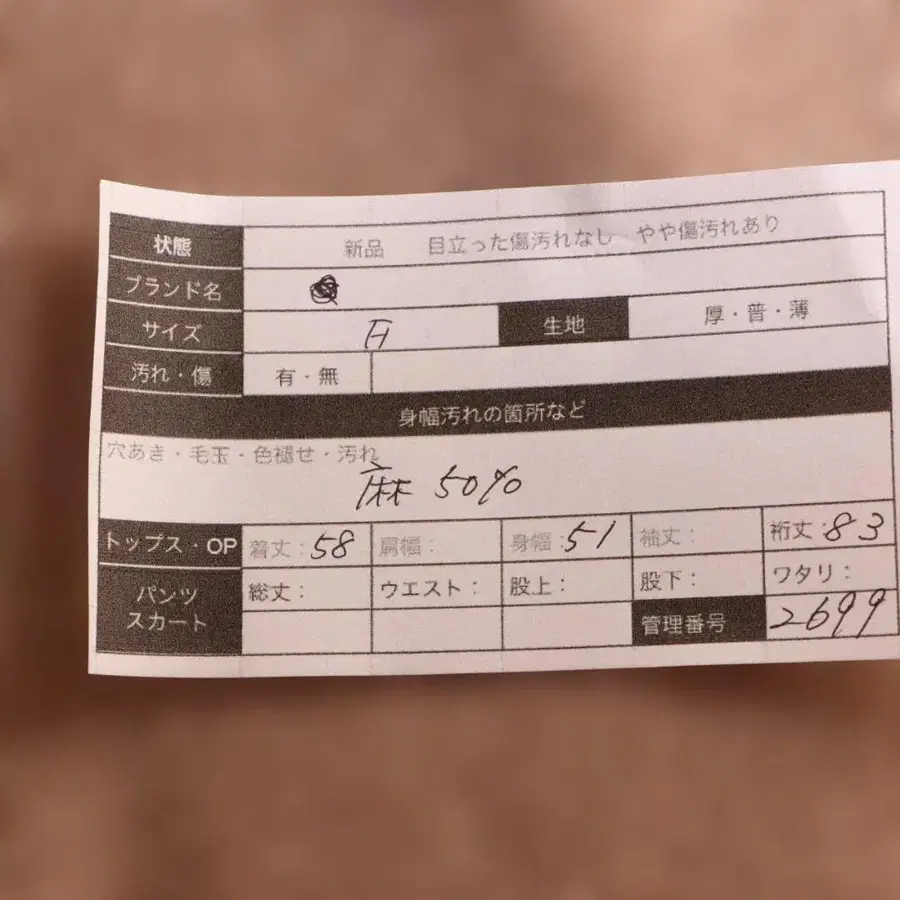 状態 新品 目立った傷汚れなし やや傷汚れあり
ブランド名
サイズ 生地 厚・普・薄
汚れ・傷 有・無
身幅汚れの箇所など
穴あき・毛玉・色褪せ・汚れ
麻 50%
トップス・OP 着丈:58 肩幅: 身幅:51 袖丈: 裄丈:83
パンツ スカート 総丈: ウエスト: 股上: 股下: ワタリ:
管理番号 2699